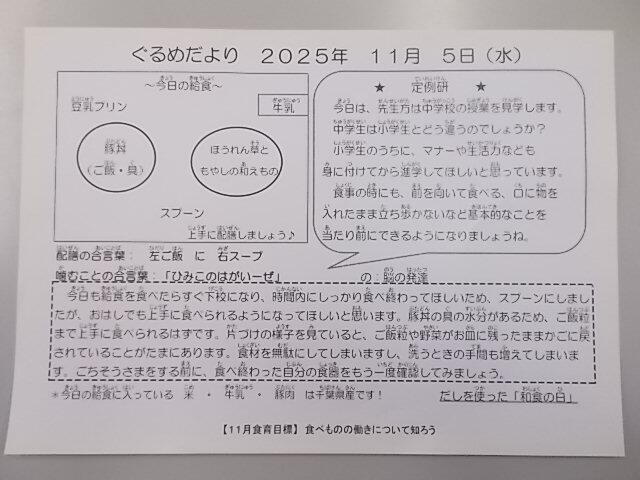 ぐるめだより　２０２５年　１１月　５日（水）
～今日の給食～
豆乳プリン
牛乳
豚丼
（ご飯・具）
ほうれん草と
もやしの和えもの
スプーン
上手に配膳しましょう♪
★　定例研　★
今日は、先生方は中学校の授業を見学します。
中学生は小学生とどう違うのでしょうか？
小学生のうちに、マナーや生活力なども
身に付けてから進学してほしいと思っています。
食事の時にも、前を向いて食べる、口に物を
入れたまま立ち歩かないなど基本的なことを
当たり前にできるようになりましょうね。
配膳の合言葉：　左ご飯　に　右スープ
噛むことの合言葉：「ひみこのはがいーぜ」　の：脳の発達
今日も給食を食べたらすぐ下校になり、時間内にしっかり食べ終わってほしいため、スプーンにしまし
たが、おはしでも上手に食べられるようになってほしいと思います。豚丼の具の水分があるため、ご飯粒
まで上手に食べられるはずです。片づけの様子を見ていると、ご飯粒や野菜がお皿に残ったままかごに戻
されていることがたまにあります。食材を無駄にしてしまいますし、洗うときの手間も増えてしまいま
す。ごちそうさまをする前に、食べ終わった自分の食器をもう一度確認してみましょう。
＊今日の給食に入っている　米　・　牛乳　・　豚肉　は千葉県産です！　だしを使った「和食の日」
【１１月食育目標】食べものの働きについて知ろう